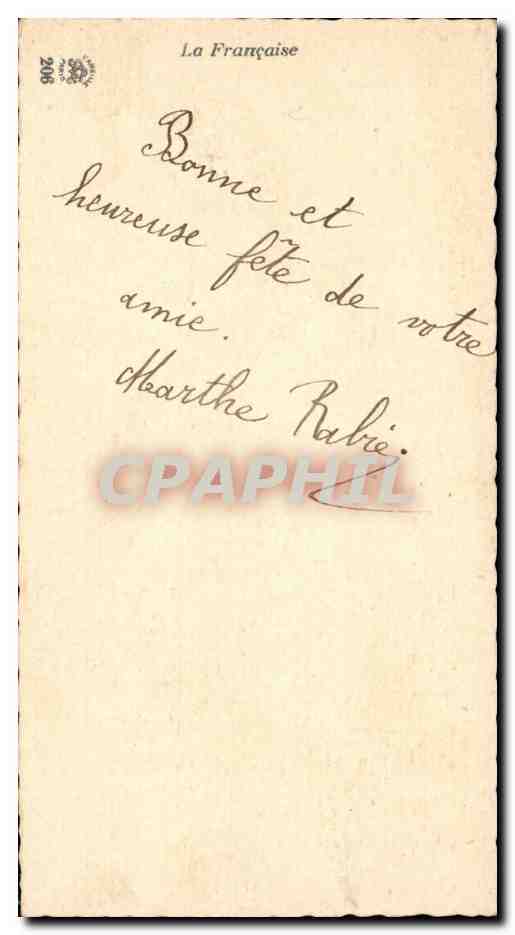 La Française
206
Bonne et
heureuse fête de votre
amie.
Marthe Rabié.
CPAPHIL